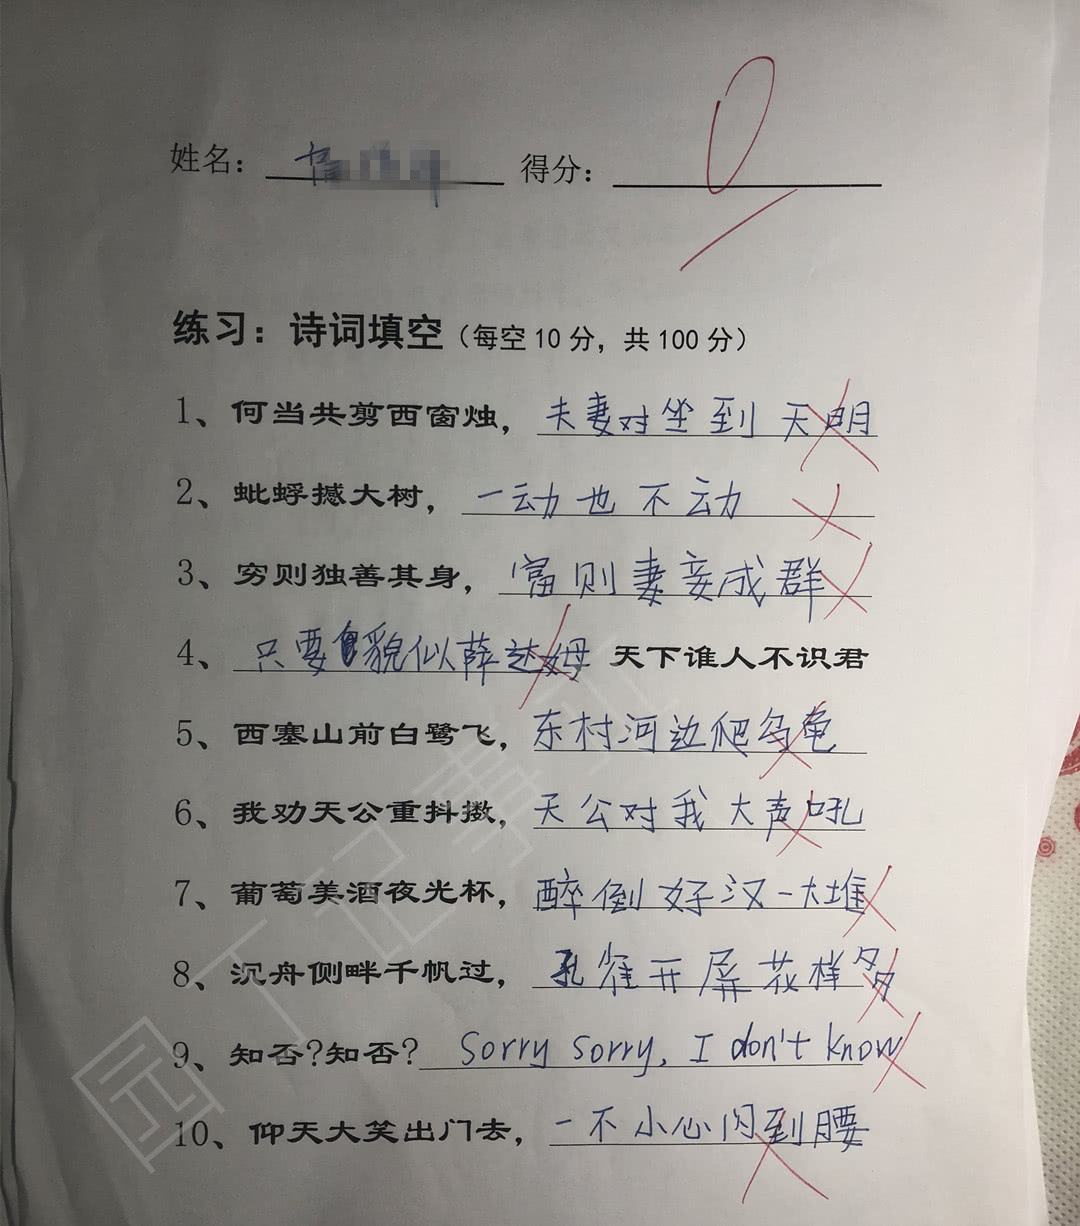 姓名： 得分： 0
练习：诗词填空（每空10分，共100分）
1、何当共剪西窗烛，夫妻对坐到天明
2、蚍蜉撼大树，一动也不动
3、穷则独善其身，富则妻妾成群
4、只要貌似薛达姆 天下谁人不识君
5、西塞山前白鹭飞，东村河边爬乌龟
6、我劝天公重抖擞，天公对我大声吼
7、葡萄美酒夜光杯，醉倒好汉一大堆
8、沉舟侧畔千帆过，孔雀开屏花样多
9、知否?知否? Sorry sorry, I don't know
10、仰天大笑出门去，一不小心闪到腰
园丁记事